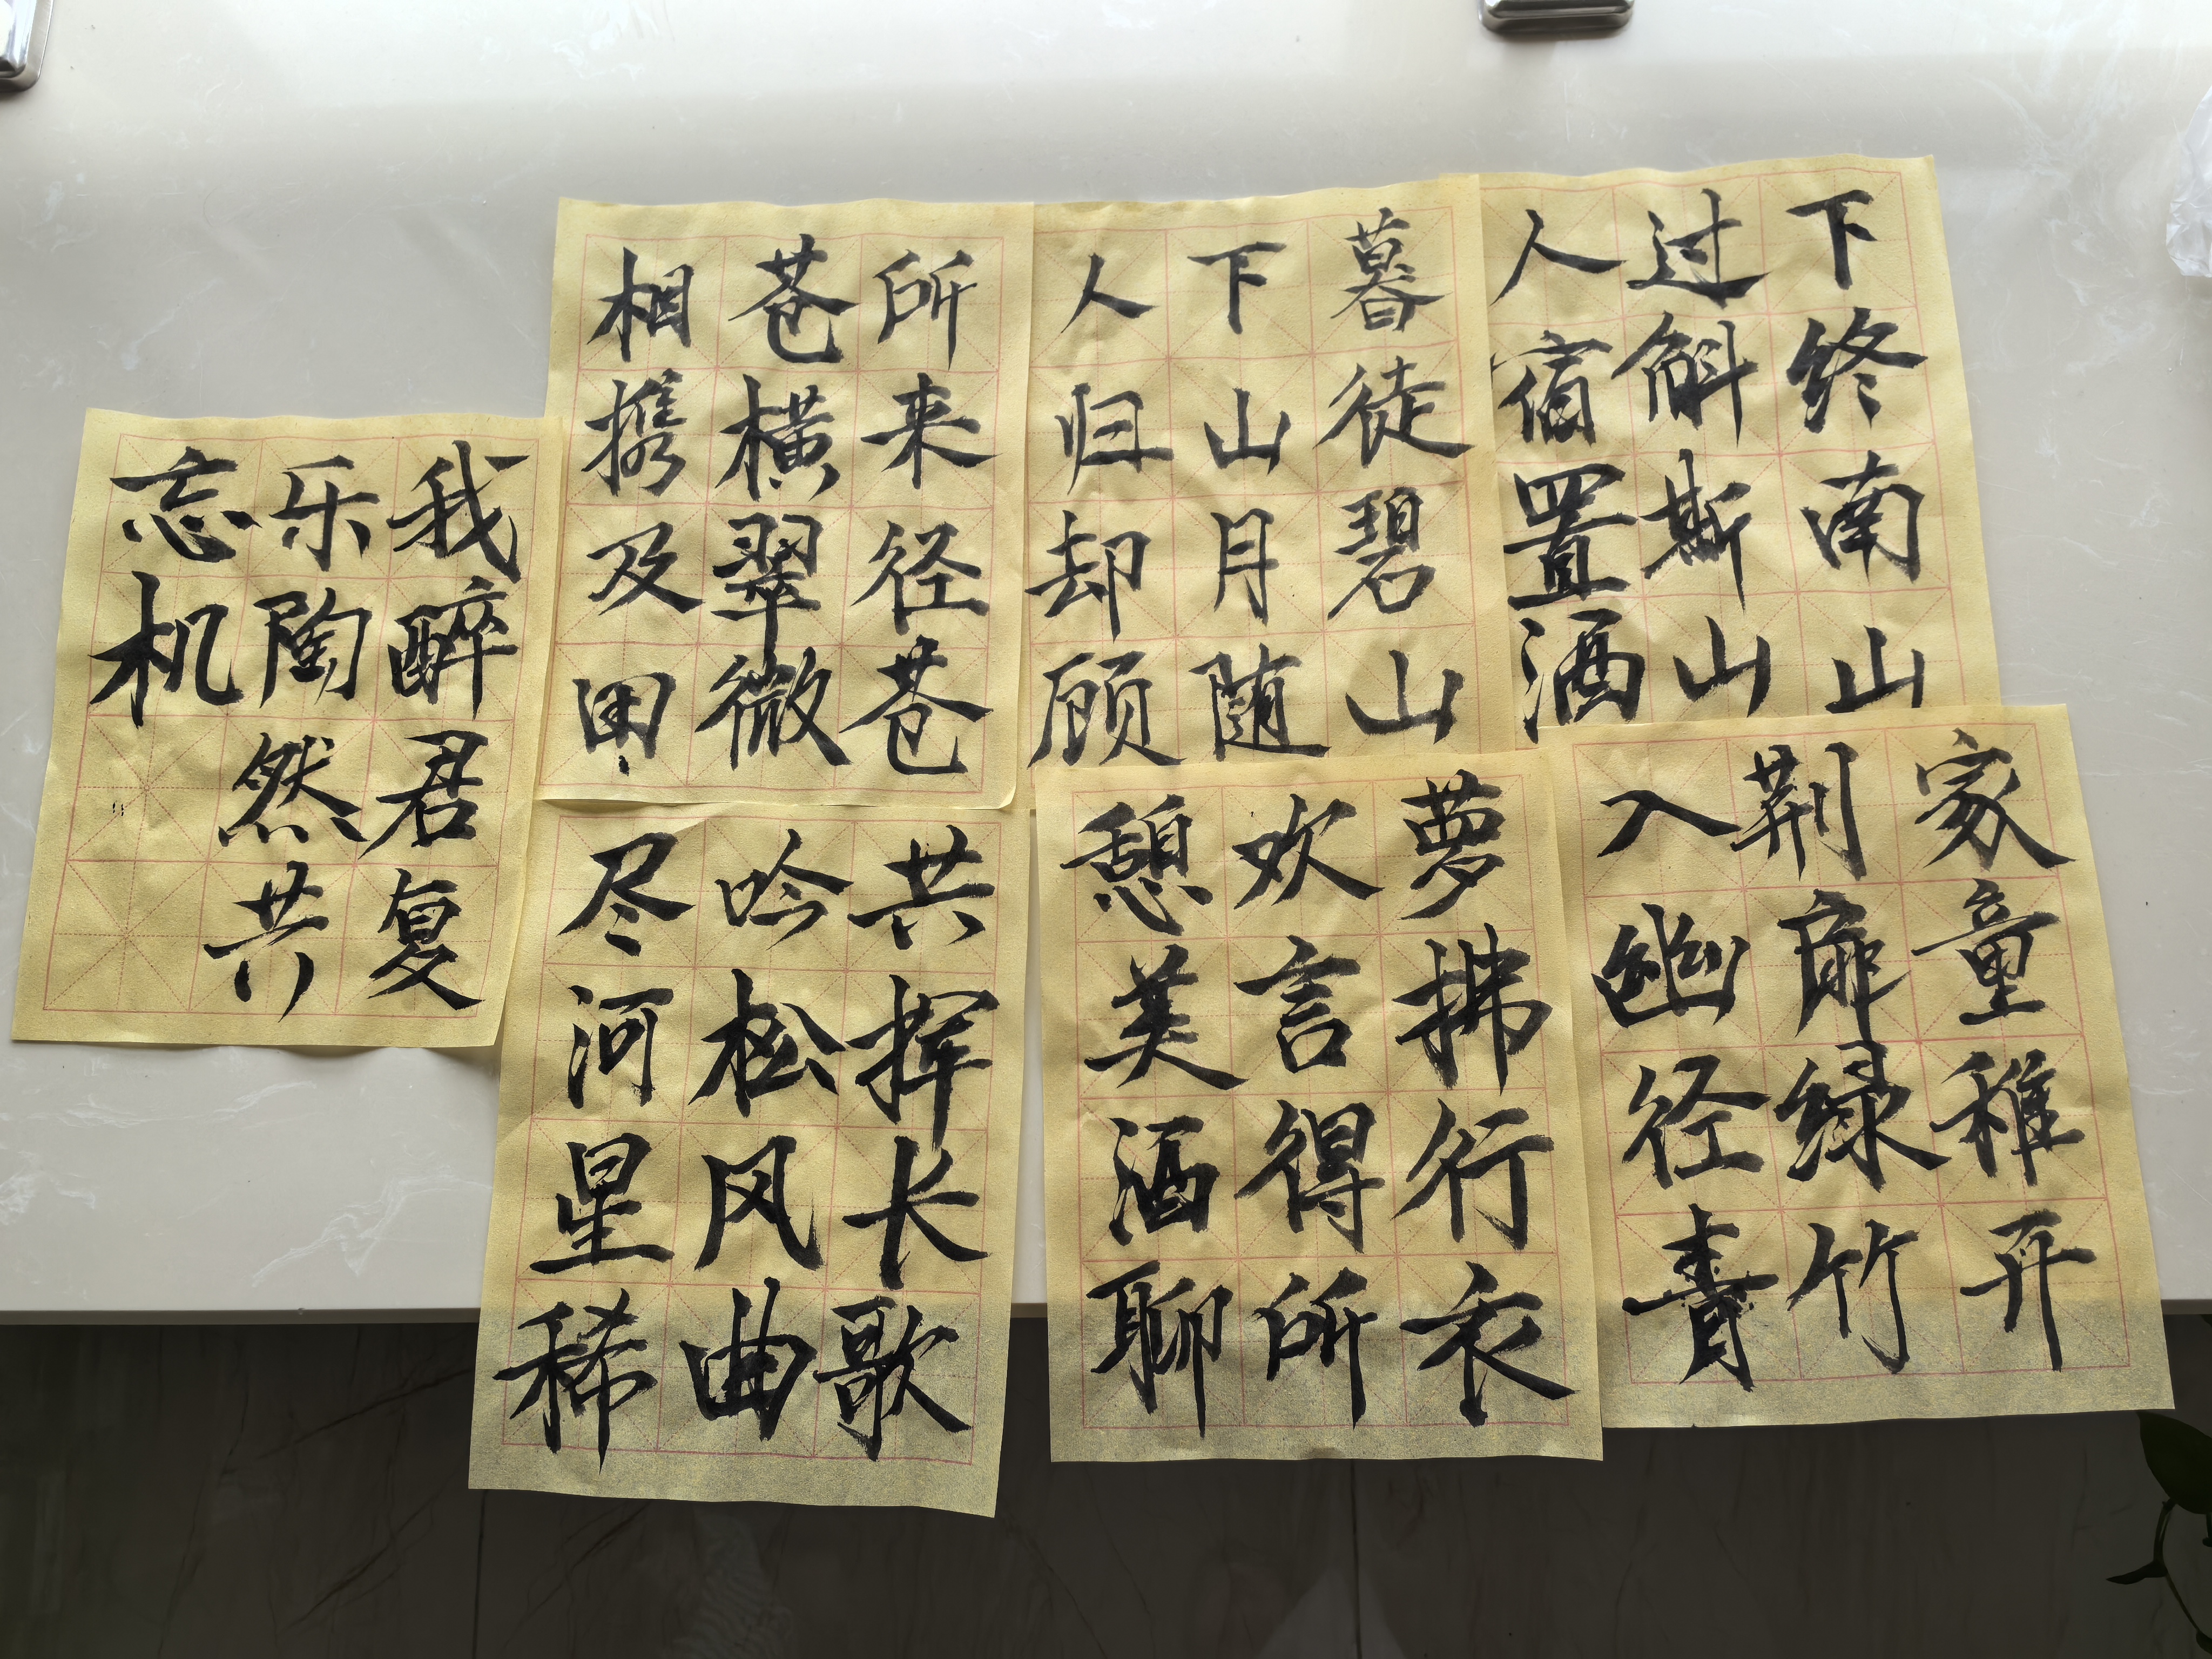 下终南山
过斛斯山
人宿置酒
暮徒碧山
下山月随
人归却顾
所来径苍
苍横翠微
相携及田
家童稚开
荆扉绿竹
入幽径青
萝拂行衣
欢言得所
憩美酒聊
共挥长歌
吟松风曲
尽河星稀
我醉君复
乐陶然共
忘机